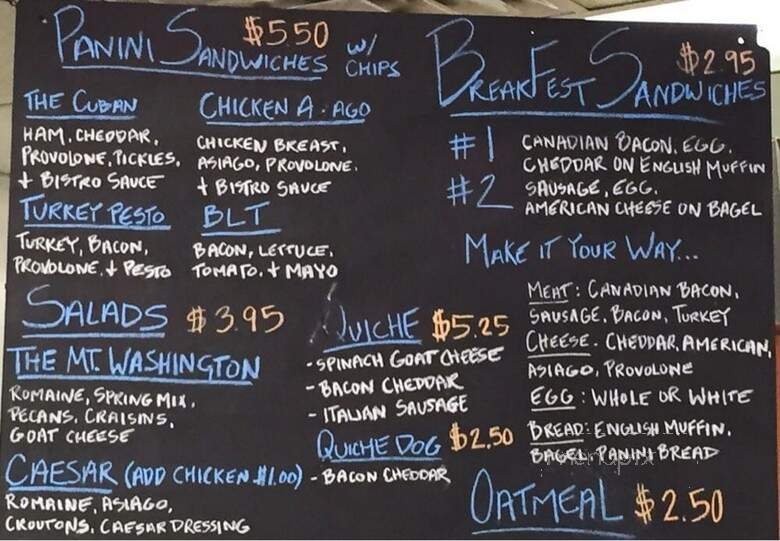 PANINI SANDWICHES $5.50 W/ CHIPS
THE CUBAN
HAM, CHEDDAR,
PROVOLONE, PICKLES,
+ BISTRO SAUCE
CHICKEN A·AGO
CHICKEN BREAST,
ASIAGO, PROVOLONE,
+ BISTRO SAUCE
TURKEY PESTO
TURKEY, BACON,
PROVOLONE, + PESTO
BLT
BACON, LETTUCE,
TOMATO, + MAYO
SALADS $3.95
THE MT. WASHINGTON
ROMAINE, SPRING MIX,
PECANS, CRAISINS,
GOAT CHEESE
CAESAR (ADD CHICKEN $1.00)
ROMAINE, ASIAGO,
CROUTONS, CAESAR DRESSING
QUICHE $5.25
- SPINACH GOAT CHEESE
- BACON CHEDDAR
- ITALIAN SAUSAGE
QUICHE DOG $2.50
- BACON CHEDDAR
BREAKFEST SANDWICHES $2.95
#1 CANADIAN BACON, EGG,
CHEDDAR ON ENGLISH MUFFIN
#2 SAUSAGE, EGG,
AMERICAN CHEESE ON BAGEL
MAKE IT YOUR WAY...
MEAT: CANADIAN BACON,
SAUSAGE, BACON, TURKEY
CHEESE. CHEDDAR, AMERICAN,
ASIAGO, PROVOLONE
EGG: WHOLE OR WHITE
BREAD: ENGLISH MUFFIN,
BAGEL, PANINI BREAD
menupix
OATMEAL $2.50